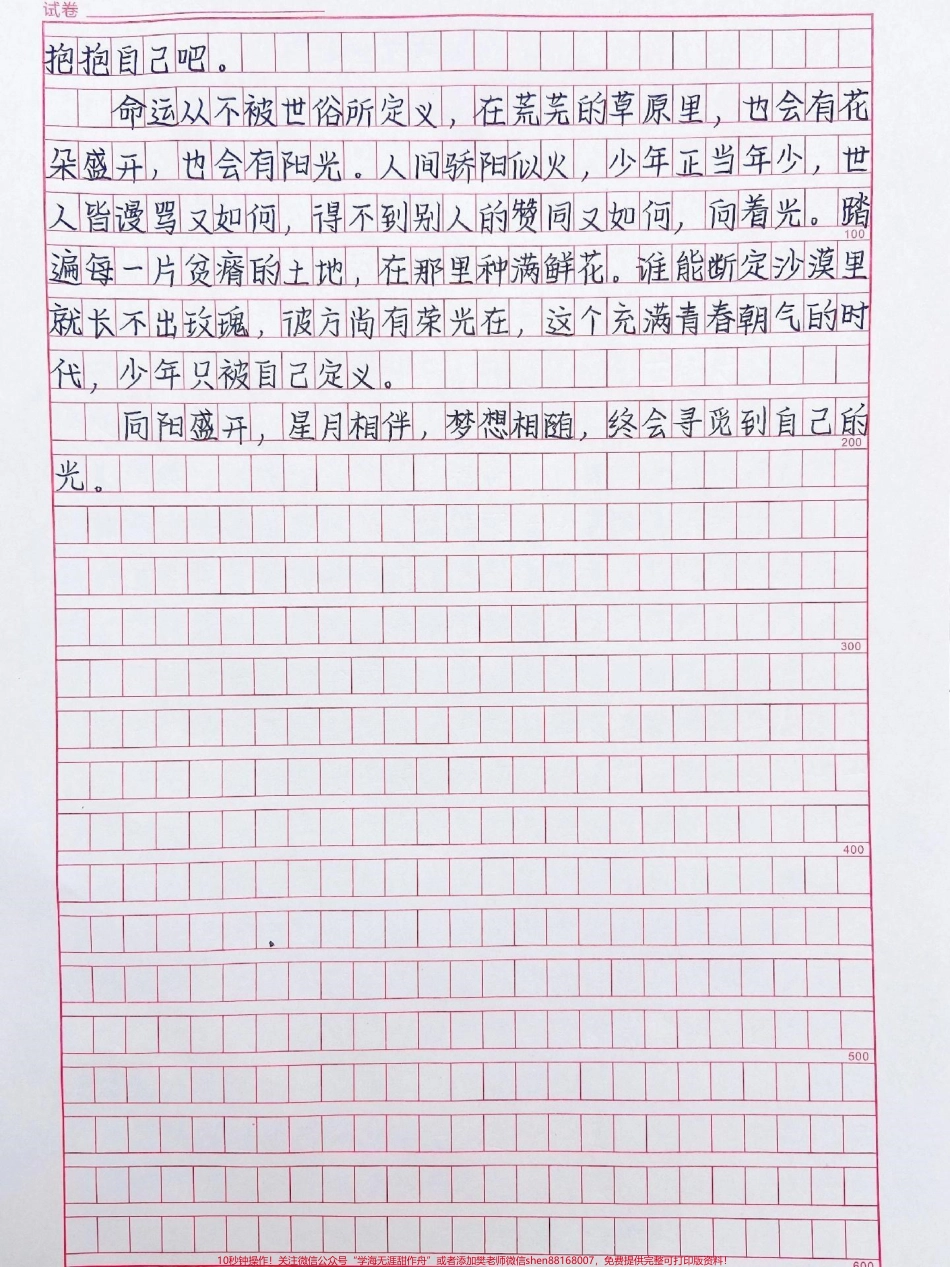 试卷
抱抱自己吧。
命运从不被世俗所定义，在荒芜的草原里，也会有花
朵盛开，也会有阳光。人间骄阳似火，少年正当年少，世
人皆谩骂又如何，得不到别人的赞同又如何，向着光。踏
100
遍每一片贫瘠的土地，在那里种满鲜花。谁能断定沙漠里
就长不出玫瑰，彼方尚有荣光在，这个充满青春朝气的时
代，少年只被自己定义。
向阳盛开，星月相伴，梦想相随，终会寻觅到自己的
200
光。
300
400
500
10秒钟操作！关注微信公众号“学海无涯甜作舟”或者添加樊老师微信shen88168007，免费提供完整可打印版资料！
600